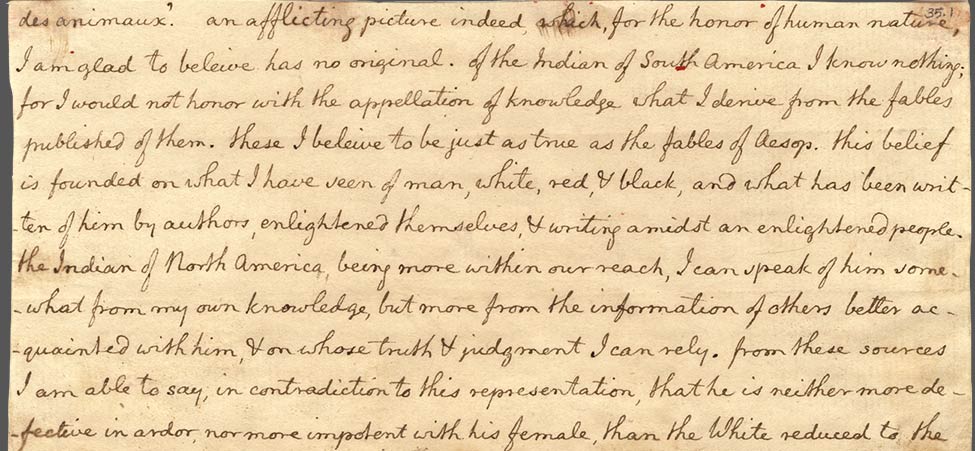 35.1
des animaux.' an afflicting picture indeed, which, for the honor of human nature,
I am glad to beleive has no original. of the Indian of South America I know nothing;
for I would not honor with the appellation of knowledge what I derive from the fables
published of them. these I beleive to be just as true as the fables of Aesop. this belief
is founded on what I have seen of man, white, red, & black, and what has been writ-
-ten of him by authors, enlightened themselves, & writing amidst an enlightened people.
the Indian of North America, being more within our reach, I can speak of him some-
-what from my own knowledge, but more from the information of others better ac-
-quainted with him, & on whose truth & judgment I can rely. from these sources
I am able to say, in contradiction to this representation, that he is neither more de-
-fective in ardor, nor more impotent with his female, than the White reduced to the